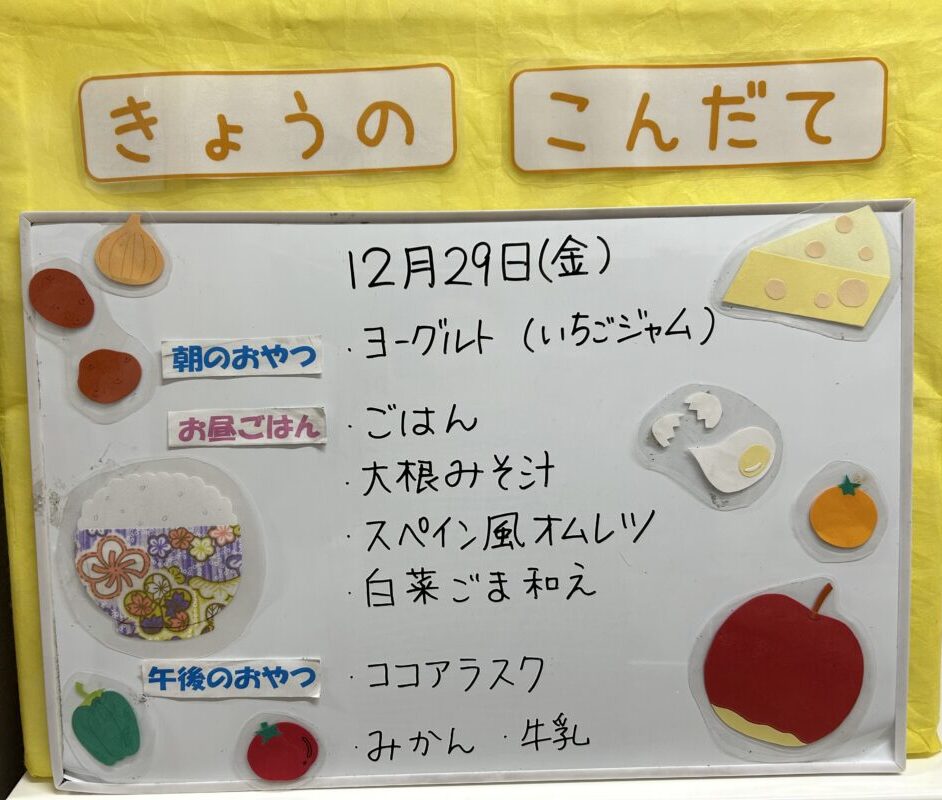 きょうの こんだて
12月29日(金)
朝のおやつ ・ヨーグルト (いちごジャム)
お昼ごはん ・ごはん
・大根みそ汁
・スペイン風オムレツ
・白菜ごま和え
午後のおやつ ・ココアラスク
・みかん ・牛乳